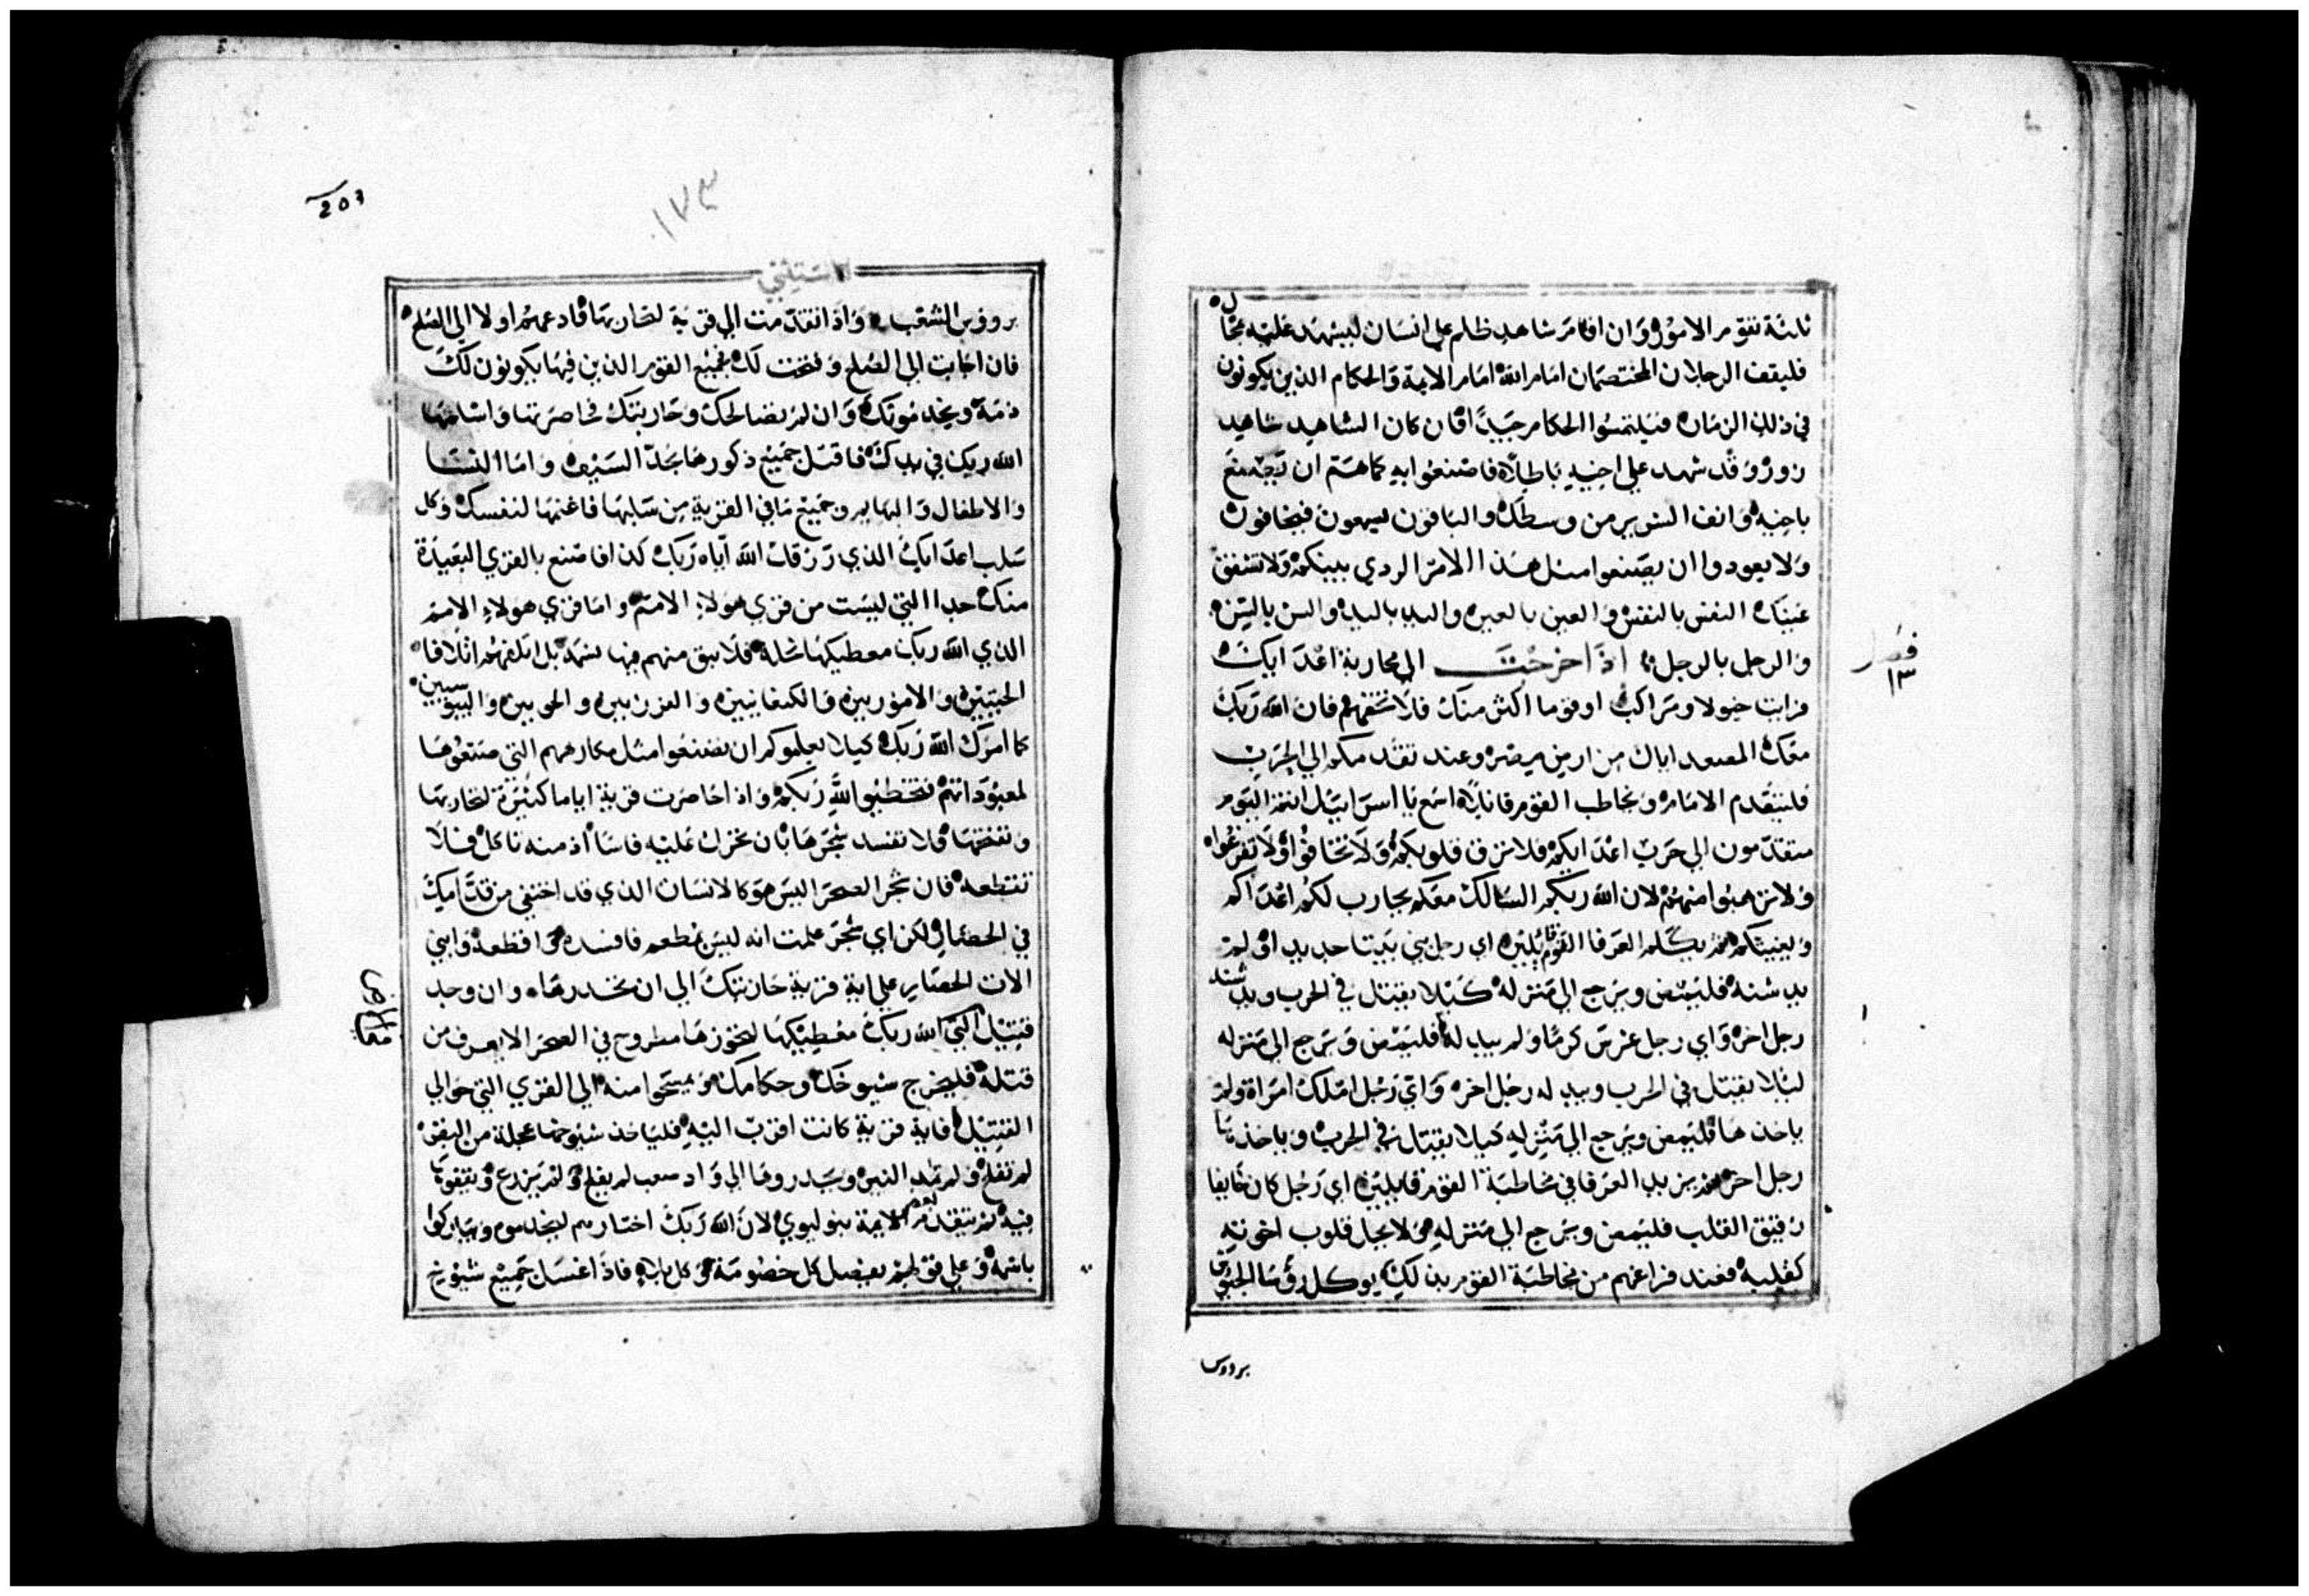 ثلثة تقوم الامور وان اقام شاهد ظلم على انسان ليشهد عليه محال
فليقف الرجلان المختصمان امام الله امام الايمة والحكام الذين يكونون
في ذلك الزمان فيلتمسوا الحكام جيدا فان كان الشاهد شاهد
زور وقد شهد على اخيه باطلا فاصنعوا به كما هم ان يصنع
باخيه وانف الشرير من وسطك والباقون يسمعون فيخافون
ولا يعودوا ان يصنعوا مثل هذا الامر الردي بينكم ولا تشفق
عيناك النفس بالنفس والعين بالعين واليد باليد والسن بالسن
والرجل بالرجل اذا خرجت الى محاربة اعدايك
فصل
١٣
فرايت خيولا ومراكب او قوما اكثر منك فلا تخفهم فان الله ربك
معك المصعد اياك من ارض مصر وعند تقدمكم الى الحرب
فليتقدم الامام ويخاطب القوم قايلا اسمع يا اسرائيل انتم اليوم
متقدمون الى حرب اعدايكم فلا ترق قلوبكم ولا تخافوا ولا تفزعوا
ولا ترهبوا منهم لان الله ربكم السالك معكم يحارب لكم اعداكم
ويغيثكم ثم يكلم العرفا القوم قايلين اي رجل بنى بيتا جديدا ولم
يدشنه فليمض ويرجع الى منزله كيلا يقتل في الحرب ويدشنه
رجل اخر واي رجل غرس كرما ولم يبدله فليمض ويرجع الى منزله
ليلا يقتل في الحرب ويبدله رجل اخر واي رجل املك امراة ولم
ياخذها فليمض ويرجع الى منزله كيلا يقتل في الحرب وياخذها
رجل اخر ثم يزيد العرفا في مخاطبة القوم قايلين اي رجل كان خايفا
رقيق القلب فليمض ويرجع الى منزله ولا يحل قلوب اخوته
كقلبه فعند فراغهم من مخاطبة القوم بذلك يوكل رؤسا الجيوش
برووس
203
١٧٣
الاستثني
بروؤس الشعب واذا تقدمت الى قرية لتحاربها فادعهم اولا الى الصلح
فان اجابت الى الصلح وفتحت لك فجميع القوم الذين فيها يكونون لك
ذمة ويخدمونك وان لم تصالحك وحاربتك فحاصرتها واسلمها
الله ربك في يدك فاقتل جميع ذكورها بحد السيف واما النسا
والاطفال والبهايم وجميع ما في القرية من سلبها فاغنمها لنفسك وكل
سلب اعدايك الذي رزقك الله اياه ربك كذا فاصنع بالقرى البعيدة
منك جدا التي ليست من قرى هولاء الامم واما قرى هولاء الامم
الذي الله ربك معطيكها نحلة فلا تبق منهم فيها نسمة بل اتلفهم اتلافا
الحيثيين والامؤريين والكنعانيين والفرزيين والحويين واليبوسيين
كما امرك الله ربك كيلا يعلموكم ان تصنعوا مثل مكارههم التي صنعوها
لمعبوداتهم فتخطيوا لله ربكم واذا حاصرت قرية اياما كثيرة لتحاربها
وتفتحها فلا تفسد شجرها بان تحرك عليه فاسا اذ منه تاكل فلا
تقطعه فان شجر الصحرا ليس هو كالانسان الذي قد اختفى من قدامك
في الحصار لكن اي شجر علمت انه ليس يطعم فافسده واقطعه وابني
الات الحصار على اية قرية حاربتك الى ان تخدرها وان وجد
قتيل في التي الله ربك معطيكها لتحوزها مطروح في الصحرا لا يعرف من
قتله فليخرج شيوخك وحكامك ويمسحوا منه الى القرى التي حوالي
القتيل فاية قرية كانت اقرب اليه فلياخذ شيوخها عجلة من البقر
لم تفلح ولم تجذب النير ويحدروها الى واد صعب لم يفلح ولم يزرع ويقفوها
فيه ثم يتقدم الايمة بنو ليوي لان الله ربك اختارهم ليخدموه ويباركوا
باسمه وعلى قولهم يفصل كل خصومة وكل بلاء فاذا غسل جميع شيوخ